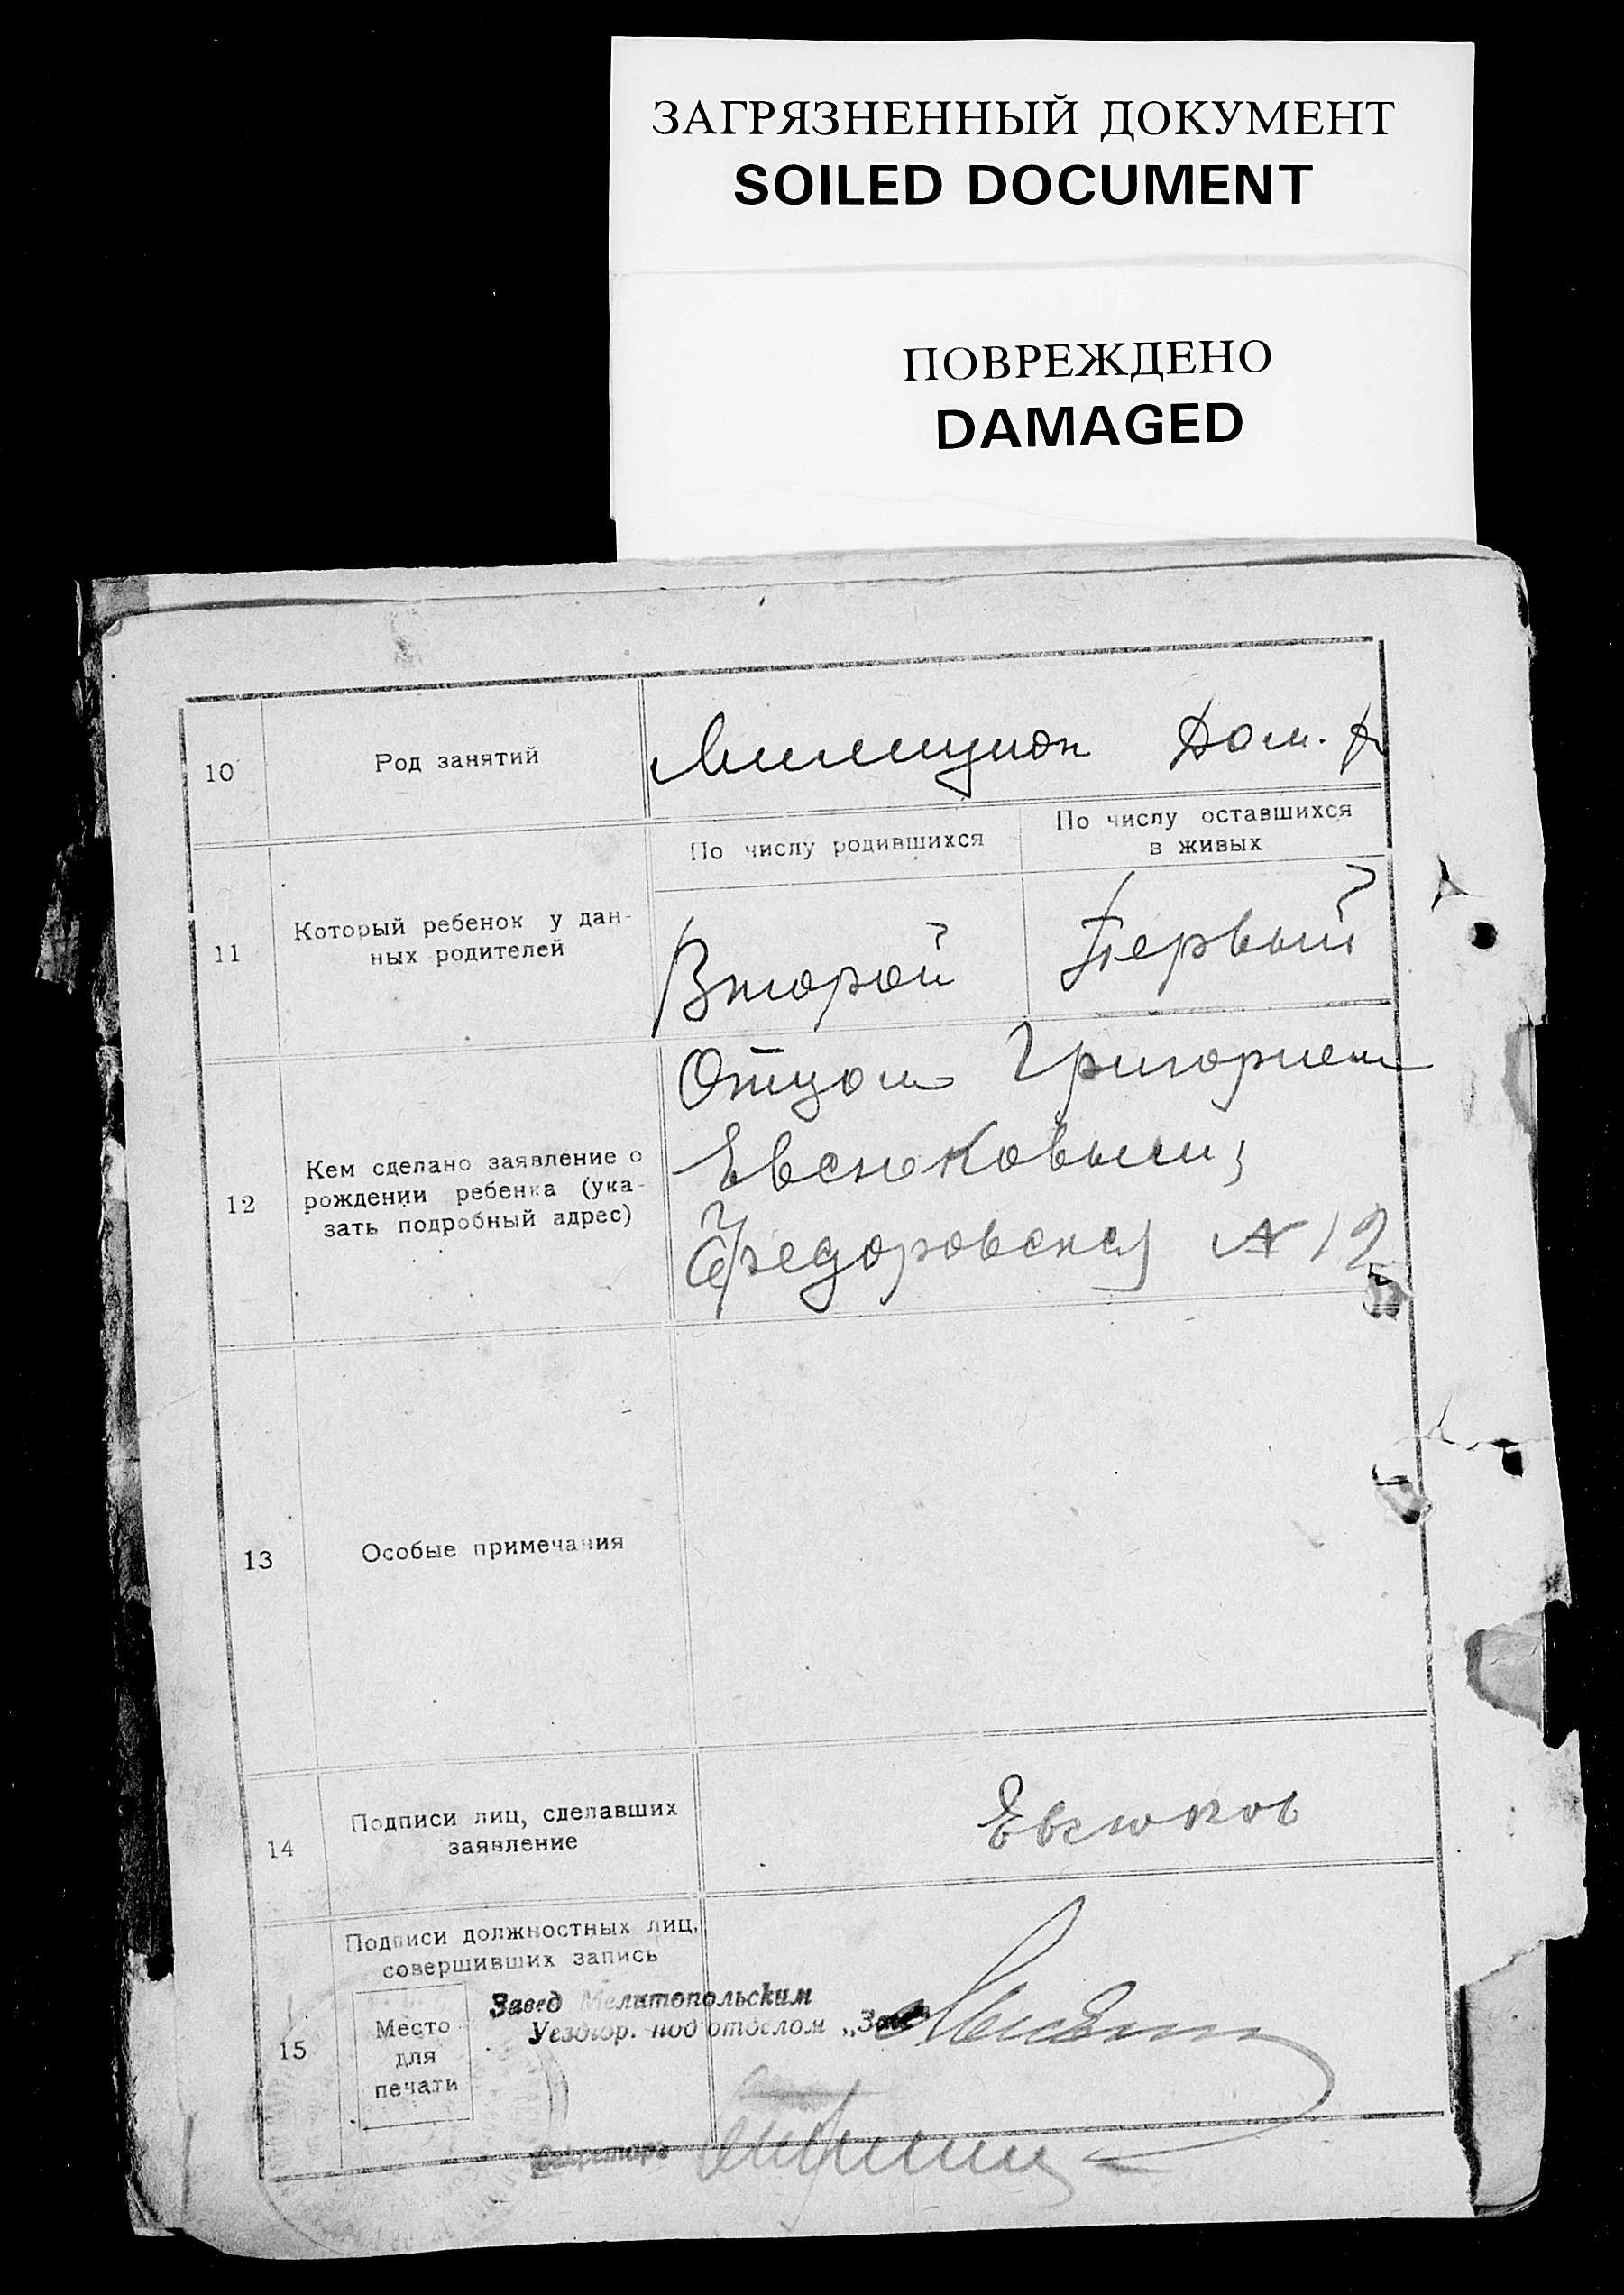 ЗАГРЯЗНЕННЫЙ ДОКУМЕНТ
SOILED DOCUMENT
ПОВРЕЖДЕНО
DAMAGED
10 Род занятий Милицион Дом. р
По числу родившихся
По числу оставшихся
в живых
11 Который ребенок у дан-
ных родителей
Второй Первый
12 Кем сделано заявление о
рождении ребенка (ука-
зать подробный адрес)
Отцом Григорием
Евсюковым,
Федоровская № 12
13 Особые примечания
14 Подписи лиц, сделавших
заявление
Евсюков
15 Подписи должностных лиц,
совершивших запись
Место
для
печати
Завед Мелитопольским
Уездгор. подотделом „Загс
Секретарь